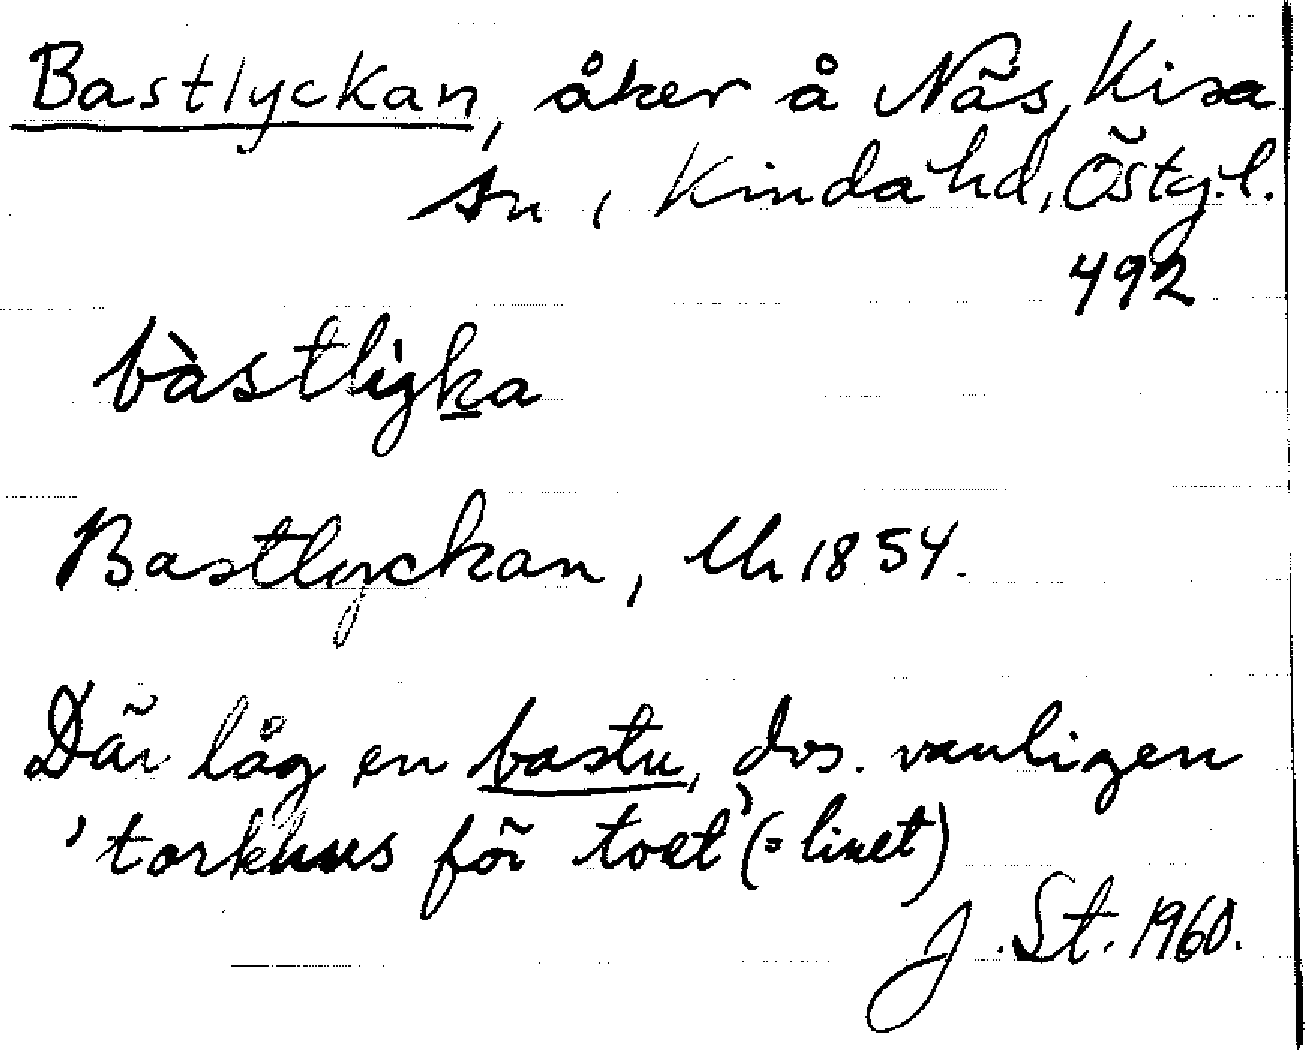 Bastlyckan, åker å Näs, Kisa
sn, Kinda hd, Östg.l.
492
bàstlịgka
Bastlyckan, Uh 1854.
Där låg en bastu, dvs. vanligen
'torkhus för toet' (= linet)
J. St. 1960.